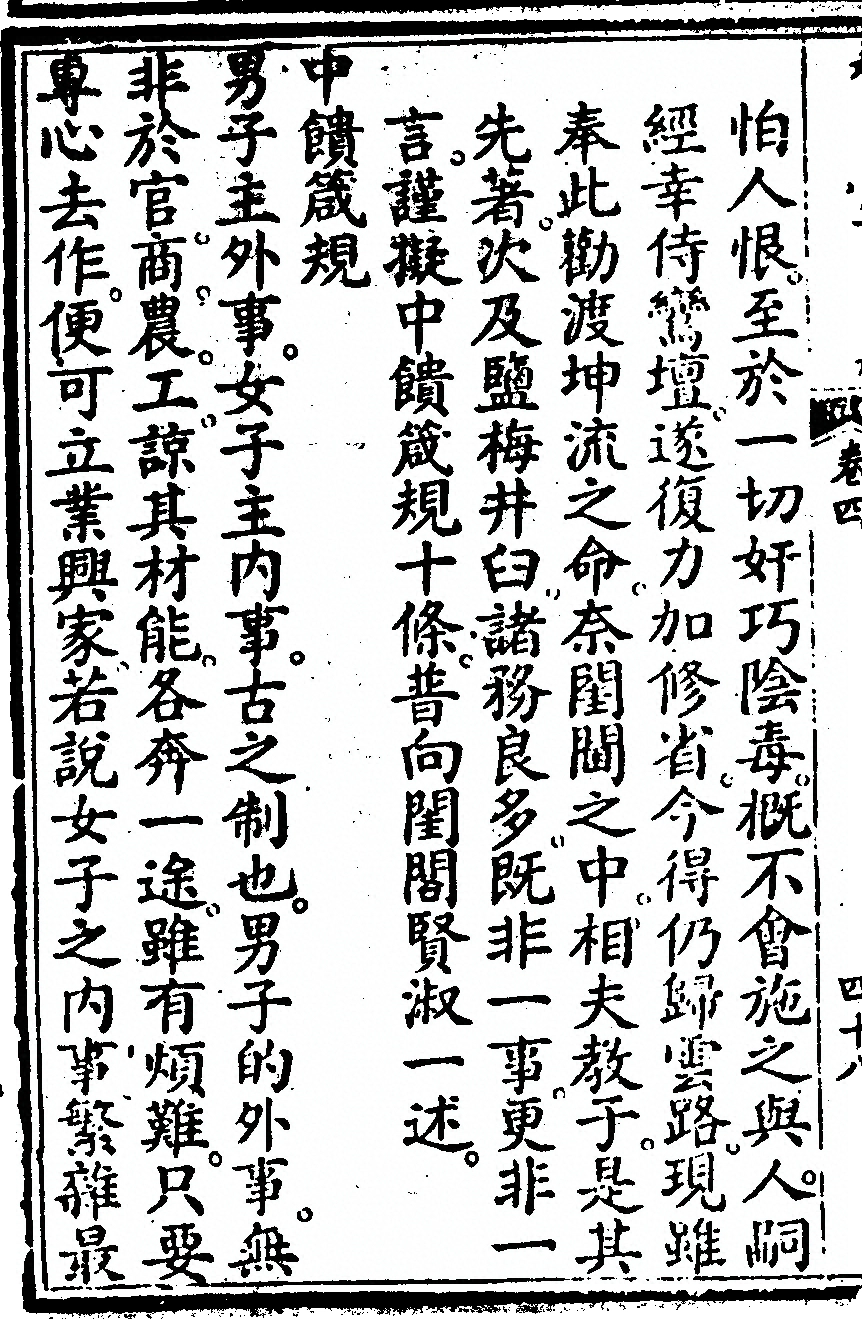 卷四
四十八
怕人恨。至於一切奸巧陰毒。槪不會施之與人。嗣
經幸侍鸞壇。遂復力加修省。今得仍歸雲路。現雖
奉此勸渡坤流之命。奈閨閫之中。相夫教子。是其
先著。次及鹽梅井臼。諸務良多。旣非一事。更非一
言。謹擬中饋箴規十條。普向閨閣賢淑一述。
中饋箴規
男子主外事。女子主內事。古之制也。男子的外事。無
非於官。商。農。工。諒其材能。各奔一途。雖有煩難。只要
專心去作。便可立業興家。若說女子之內事。繁雜最